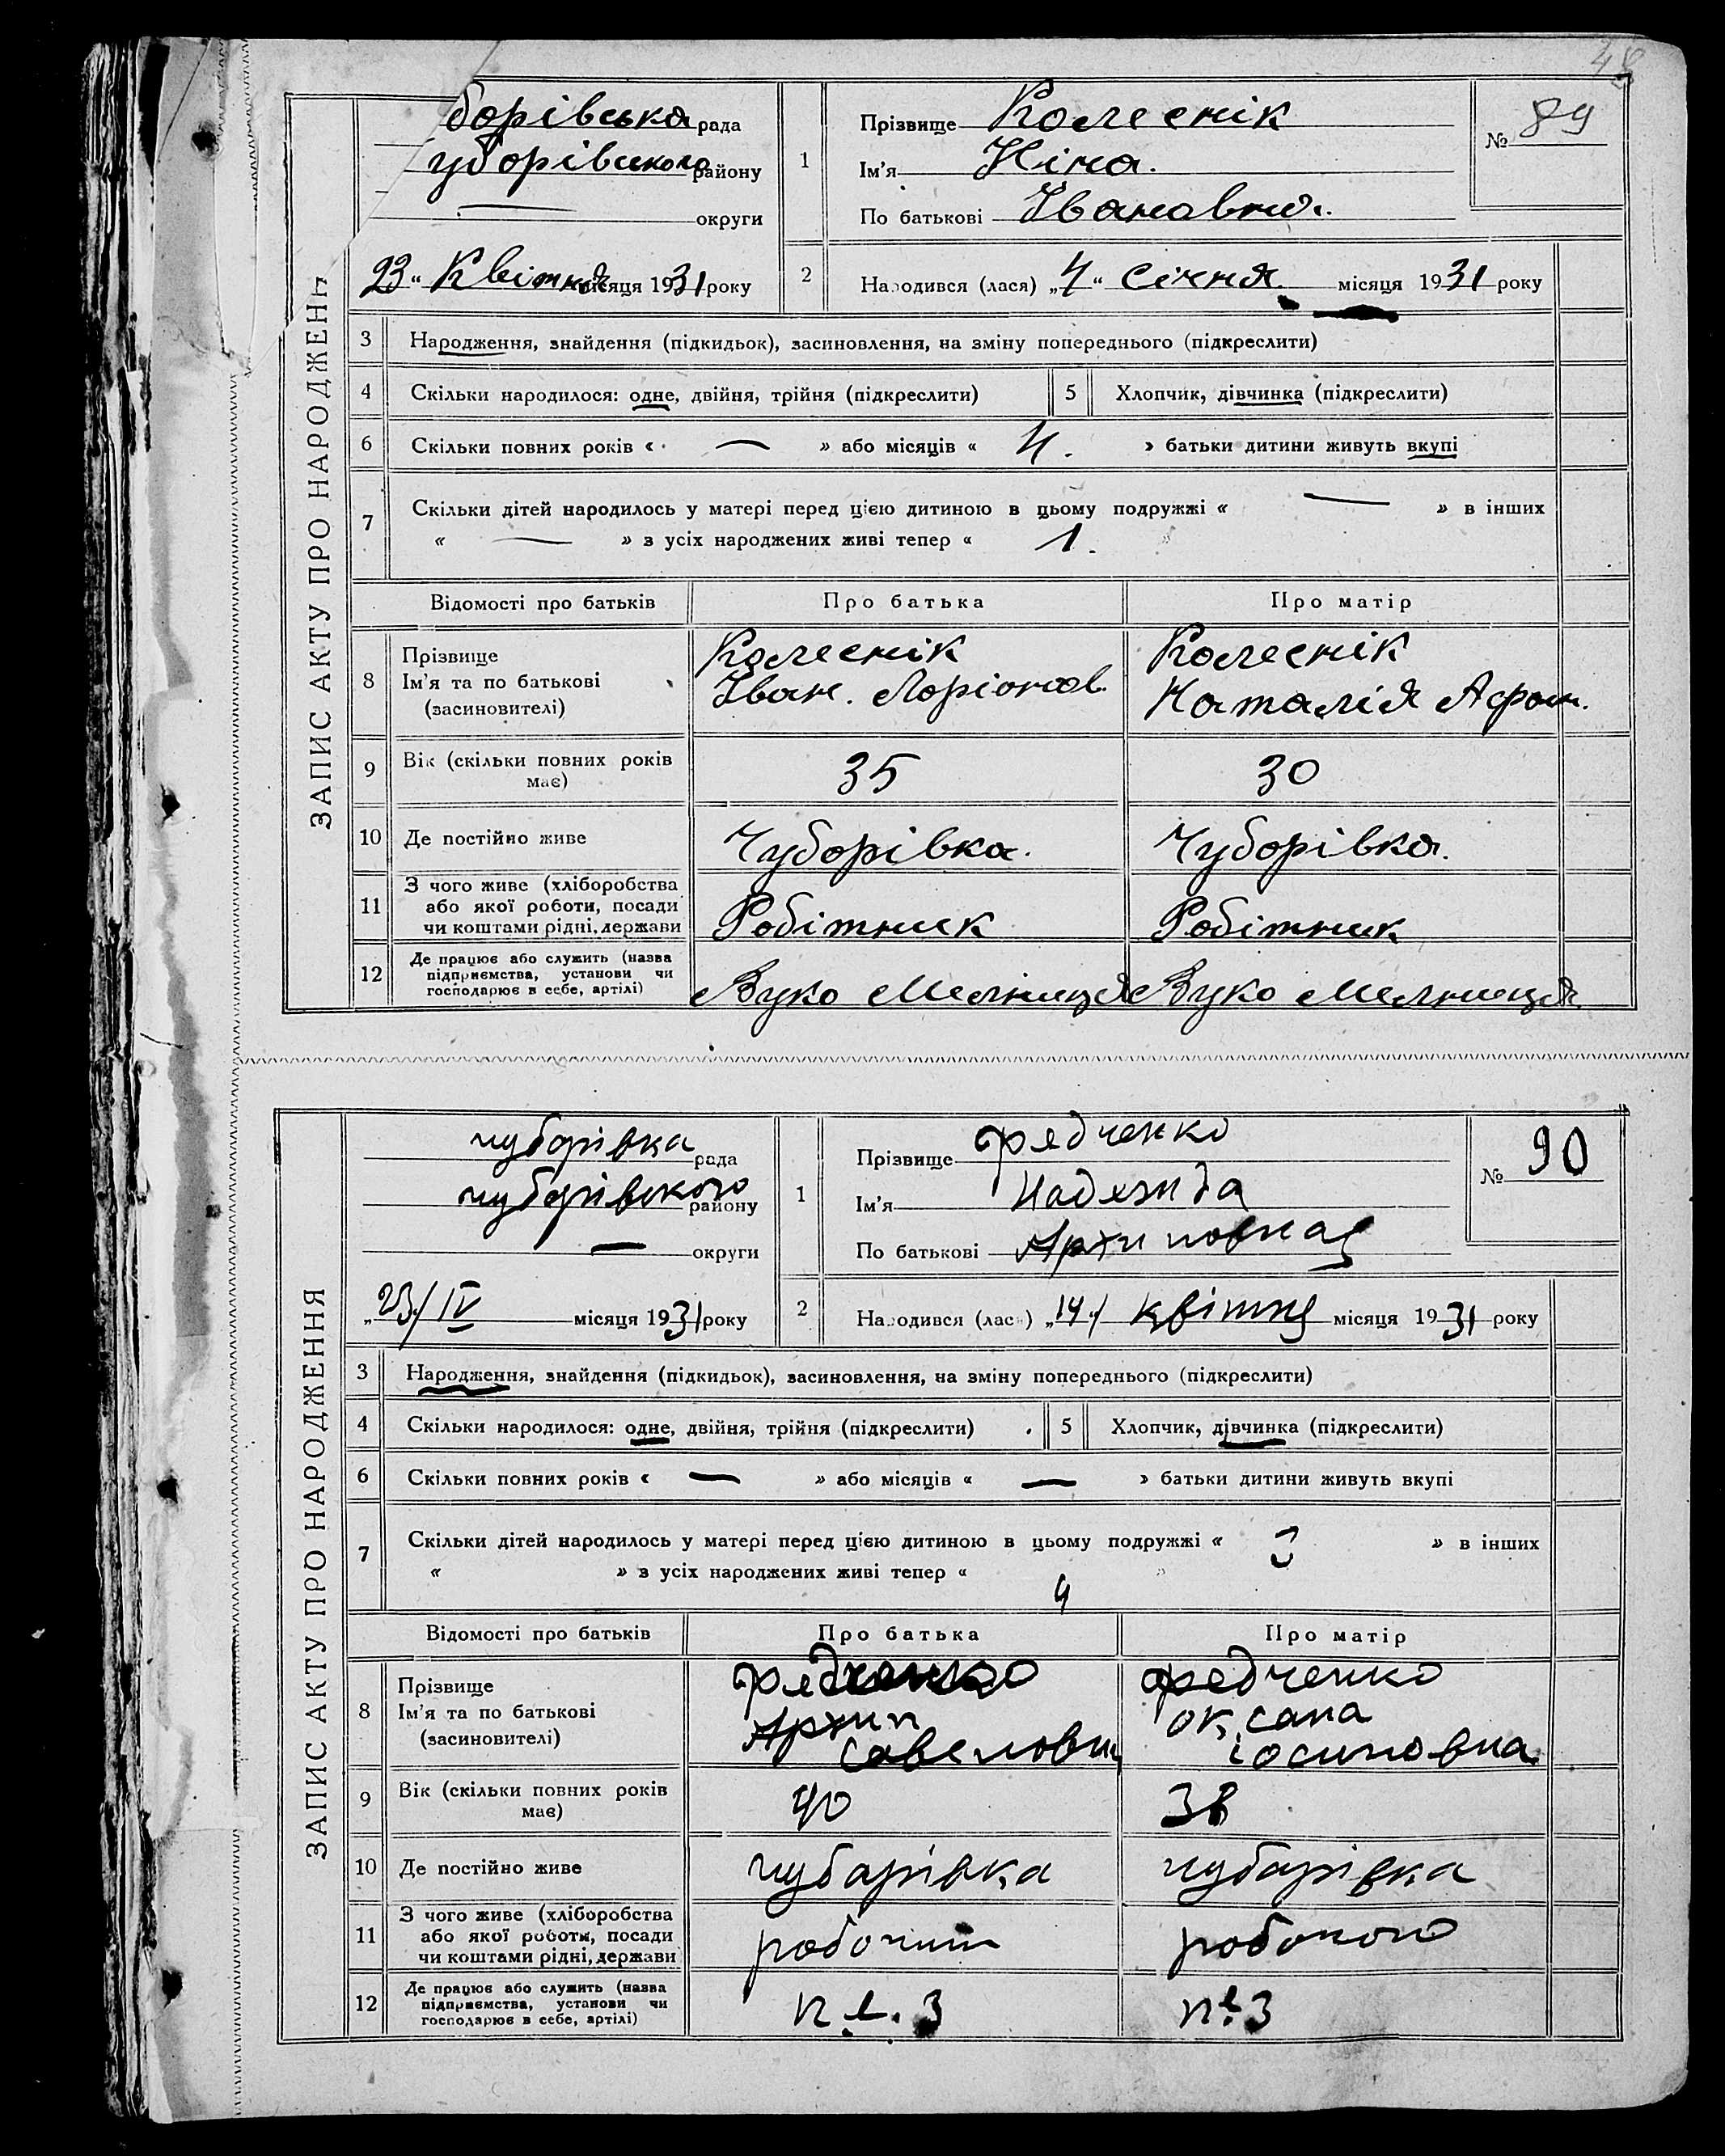 48
ЗАПИС АКТУ ПРО НАРОДЖЕН
борівська рада
уборівського району
— округи
23 “ Квітня місяця 1931 року
1
Прізвище Колеснік
Ім'я Ніна.
По батькові Івановна.
№ 89
2
Народився (лася) „4“ січня місяця 1931 року
3 Народження, знайдення (підкидьок), засиновлення, на зміну попереднього (підкреслити)
4 Скільки народилося: одне, двійня, трійня (підкреслити) 5 Хлопчик, дівчинка (підкреслити)
6 Скільки повних років « — » або місяців « 4. » батьки дитини живуть вкупі
7 Скільки дітей народилось у матері перед цією дитиною в цьому подружжі « — » в інших
« — » з усіх народжених живі тепер « 1. »
Відомості про батьків Про батька Про матір
8 Прізвище Ім'я та по батькові (засиновителі)
Колеснік
Іван. Ларіонов.
Колеснік
Наталія Афон.
9 Вік (скільки повних років має) 35 30
10 Де постійно живе Чуборівка. Чуборівка.
11 З чого живе (хліборобства або якої роботи, посади чи коштами рідні, держави Робітник Робітник
12 Де працює або служить (назва підприємства, установи чи господарює в себе, артілі) Вуко Мелниця Вуко Мелниця
ЗАПИС АКТУ ПРО НАРОДЖЕННЯ
чубарівка рада
чубарівского району
— округи
„23/IV місяця 1931 року
1
Прізвище Федченко
Ім'я Надежда
По батькові Архиповна
№ 90
2
Народився (лася) „14“ квітня місяця 1931 року
3 Народження, знайдення (підкидьок), засиновлення, на зміну попереднього (підкреслити)
4 Скільки народилося: одне, двійня, трійня (підкреслити) 5 Хлопчик, дівчинка (підкреслити)
6 Скільки повних років « — » або місяців « — » батьки дитини живуть вкупі
7 Скільки дітей народилось у матері перед цією дитиною в цьому подружжі « 3 » в інших
« » з усіх народжених живі тепер « 4 »
Відомості про батьків Про батька Про матір
8 Прізвище Ім'я та по батькові (засиновителі)
Федченко
Архип
Савелович
Федченко
оксана
іосиповна
9 Вік (скільки повних років має) 40 38
10 Де постійно живе чубарівка чубарівка
11 З чого живе (хліборобства або якої роботи, посади чи коштами рідні, держави робочий
12 Де працює або служить (назва підприємства, установи чи господарює в себе, артілі)